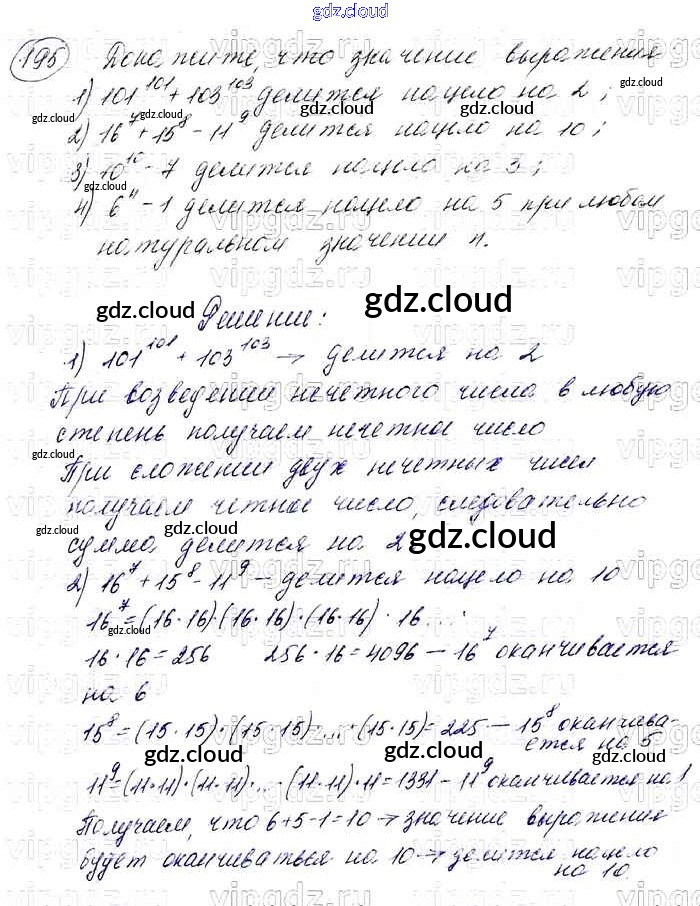 gdz.cloud
195 Докажите, что значение выражения
1) 101^101 + 103^103 делится нацело на 2;
2) 16^7 + 15^8 - 11^9 делится нацело на 10;
3) 10^10 - 7 делится нацело на 3;
4) 6^n - 1 делится нацело на 5 при любом
натуральном значении n.
Решение:
1) 101^101 + 103^103 → делится на 2
При возведении нечетного числа в любую
степень получаем нечетное число
При сложении двух нечетных чисел
получаем четное число, следовательно
сумма делится на 2
2) 16^7 + 15^8 - 11^9 – делится нацело на 10
16^7 = (16·16)·(16·16)·(16·16)·16...
16·16 = 256 256·16 = 4096 – 16^7 оканчивается
на 6
15^8 = (15·15)·(15·15)·...·(15·15) = 225 – 15^8 оканчива-
ется на 5
11^9 = (11·11)·(11·11)·...·(11·11)·11 = 1331 – 11^9 оканчивается на 1
Получаем, что 6+5-1=10 → значение выражения
будет оканчиваться на 10 → делится нацело
на 10.